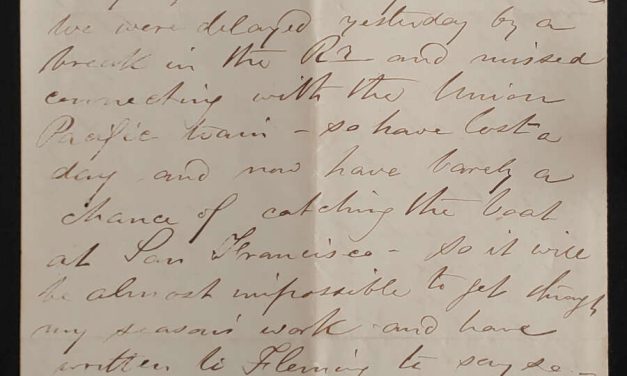 We were delayed yesterday by a
break in the RR and missed
connecting with the Union
Pacific train - so have lost a
day and now have barely a
chance of catching the boat
at San Francisco - so it will
be almost impossible to get through
my season's work and have
written to Fleming to say so -